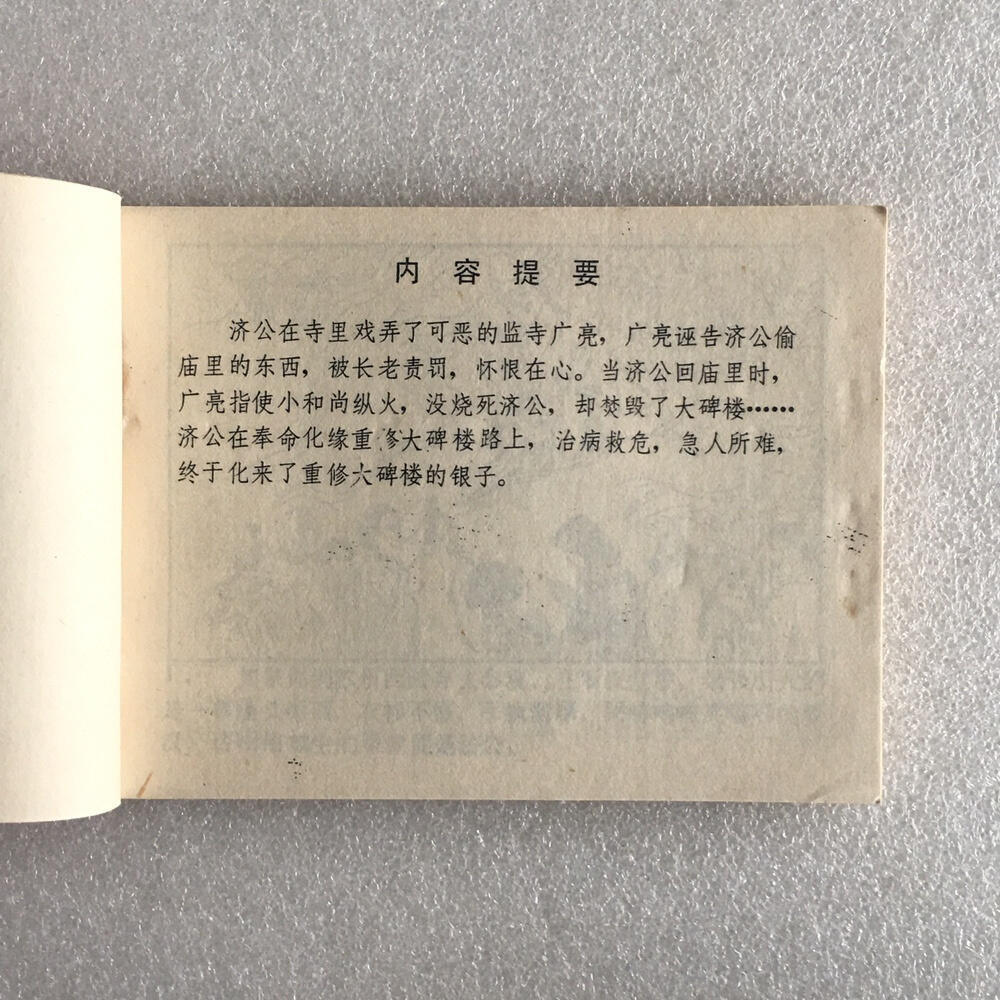 内容提要
济公在寺里戏弄了可恶的监寺广亮，广亮诬告济公偷
庙里的东西，被长老责罚，怀恨在心。当济公回庙里时，
广亮指使小和尚纵火，没烧死济公，却焚毁了大碑楼……
济公在奉命化缘重修大碑楼路上，治病救危，急人所难，
终于化来了重修大碑楼的银子。